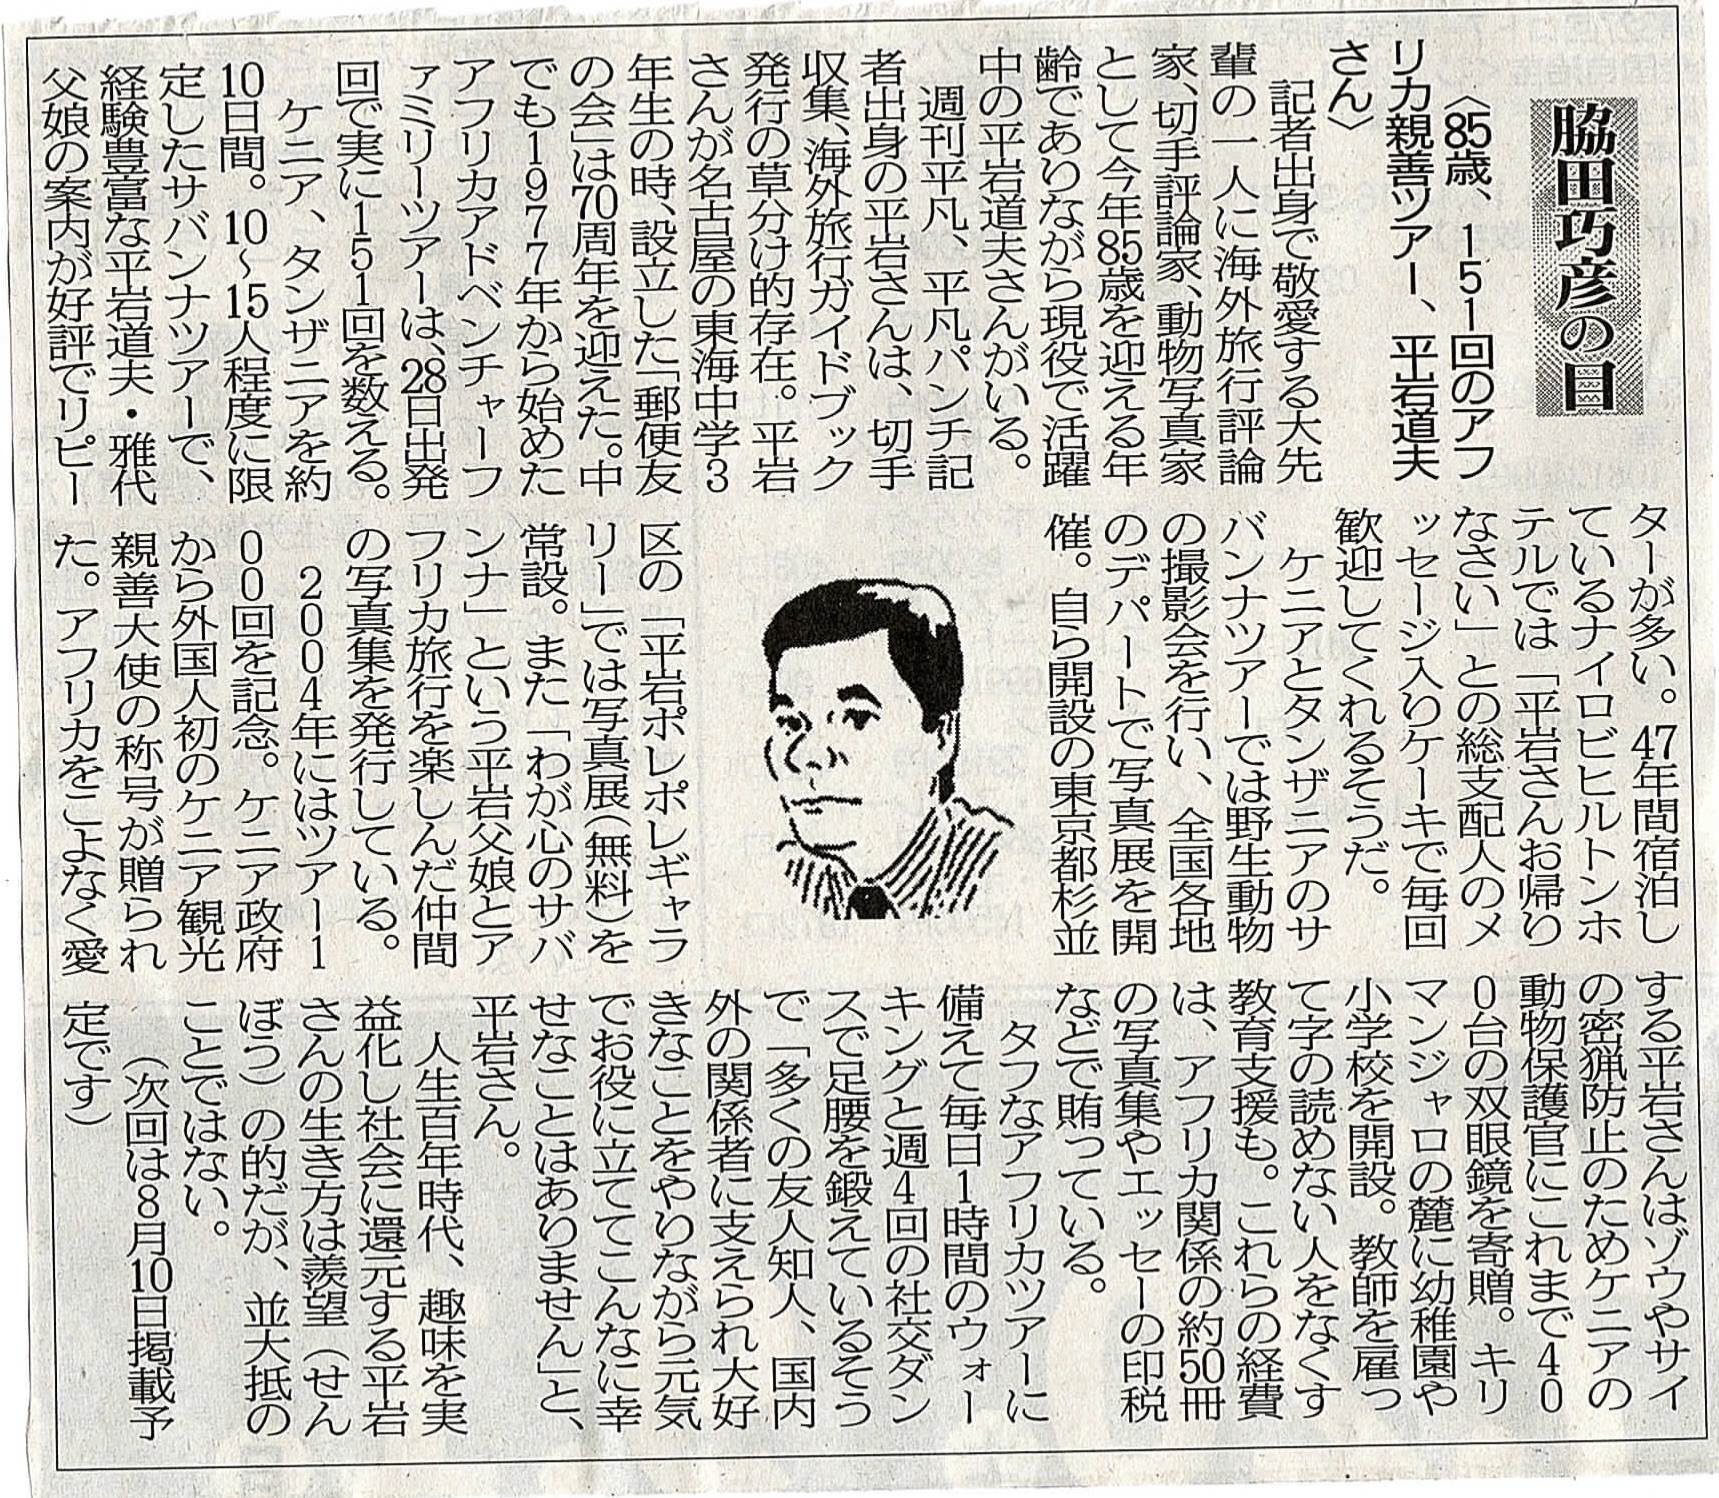 脇田巧彦の目
〈85歳、151回のアフ
リカ親善ツアー、平岩道夫
さん〉
記者出身で敬愛する大先
輩の一人に海外旅行評論
家、切手評論家、動物写真家
として今年85歳を迎える年
齢でありながら現役で活躍
中の平岩道夫さんがいる。
週刊平凡、平凡パンチ記
者出身の平岩さんは、切手
収集、海外旅行ガイドブック
発行の草分け的存在。平岩
さんが名古屋の東海中学3
年生の時、設立した「郵便友
の会」は70周年を迎えた。中
でも1977年から始めた
アフリカアドベンチャーフ
ァミリーツアーは、28日出発
回で実に151回を数える。
ケニア、タンザニアを約
10日間。10〜15人程度に限
定したサバンナツアーで、
経験豊富な平岩道夫・雅代
父娘の案内が好評でリピー
ターが多い。47年間宿泊し
ているナイロビヒルトンホ
テルでは「平岩さんお帰り
なさい」との総支配人のメ
ッセージ入りケーキで毎回
歓迎してくれるそうだ。
ケニアとタンザニアのサ
バンナツアーでは野生動物
の撮影会を行い、全国各地
のデパートで写真展を開
催。自ら開設の東京都杉並
区の「平岩ポレポレギャラ
リー」では写真展(無料)を
常設。また「わが心のサバ
ンナ」という平岩父娘とア
フリカ旅行を楽しんだ仲間
の写真集を発行している。
2004年にはツアー1
00回を記念。ケニア政府
から外国人初のケニア観光
親善大使の称号が贈られ
た。アフリカをこよなく愛
する平岩さんはゾウやサイ
の密猟防止のためケニアの
動物保護官にこれまで40
0台の双眼鏡を寄贈。キリ
マンジャロの麓に幼稚園や
小学校を開設。教師を雇っ
て字の読めない人をなくす
教育支援も。これらの経費
は、アフリカ関係の約50冊
の写真集やエッセーの印税
などで賄っている。
タフなアフリカツアーに
備えて毎日1時間のウォー
キングと週4回の社交ダン
スで足腰を鍛えているそう
で「多くの友人知人、国内
外の関係者に支えられ大好
きなことをやりながら元気
でお役に立ててこんなに幸
せなことはありません」と、
平岩さん。
人生百年時代、趣味を実
益化し社会に還元する平岩
さんの生き方は羨望(せん
ぼう)の的だが、並大抵の
ことではない。
(次回は8月10日掲載予
定です)